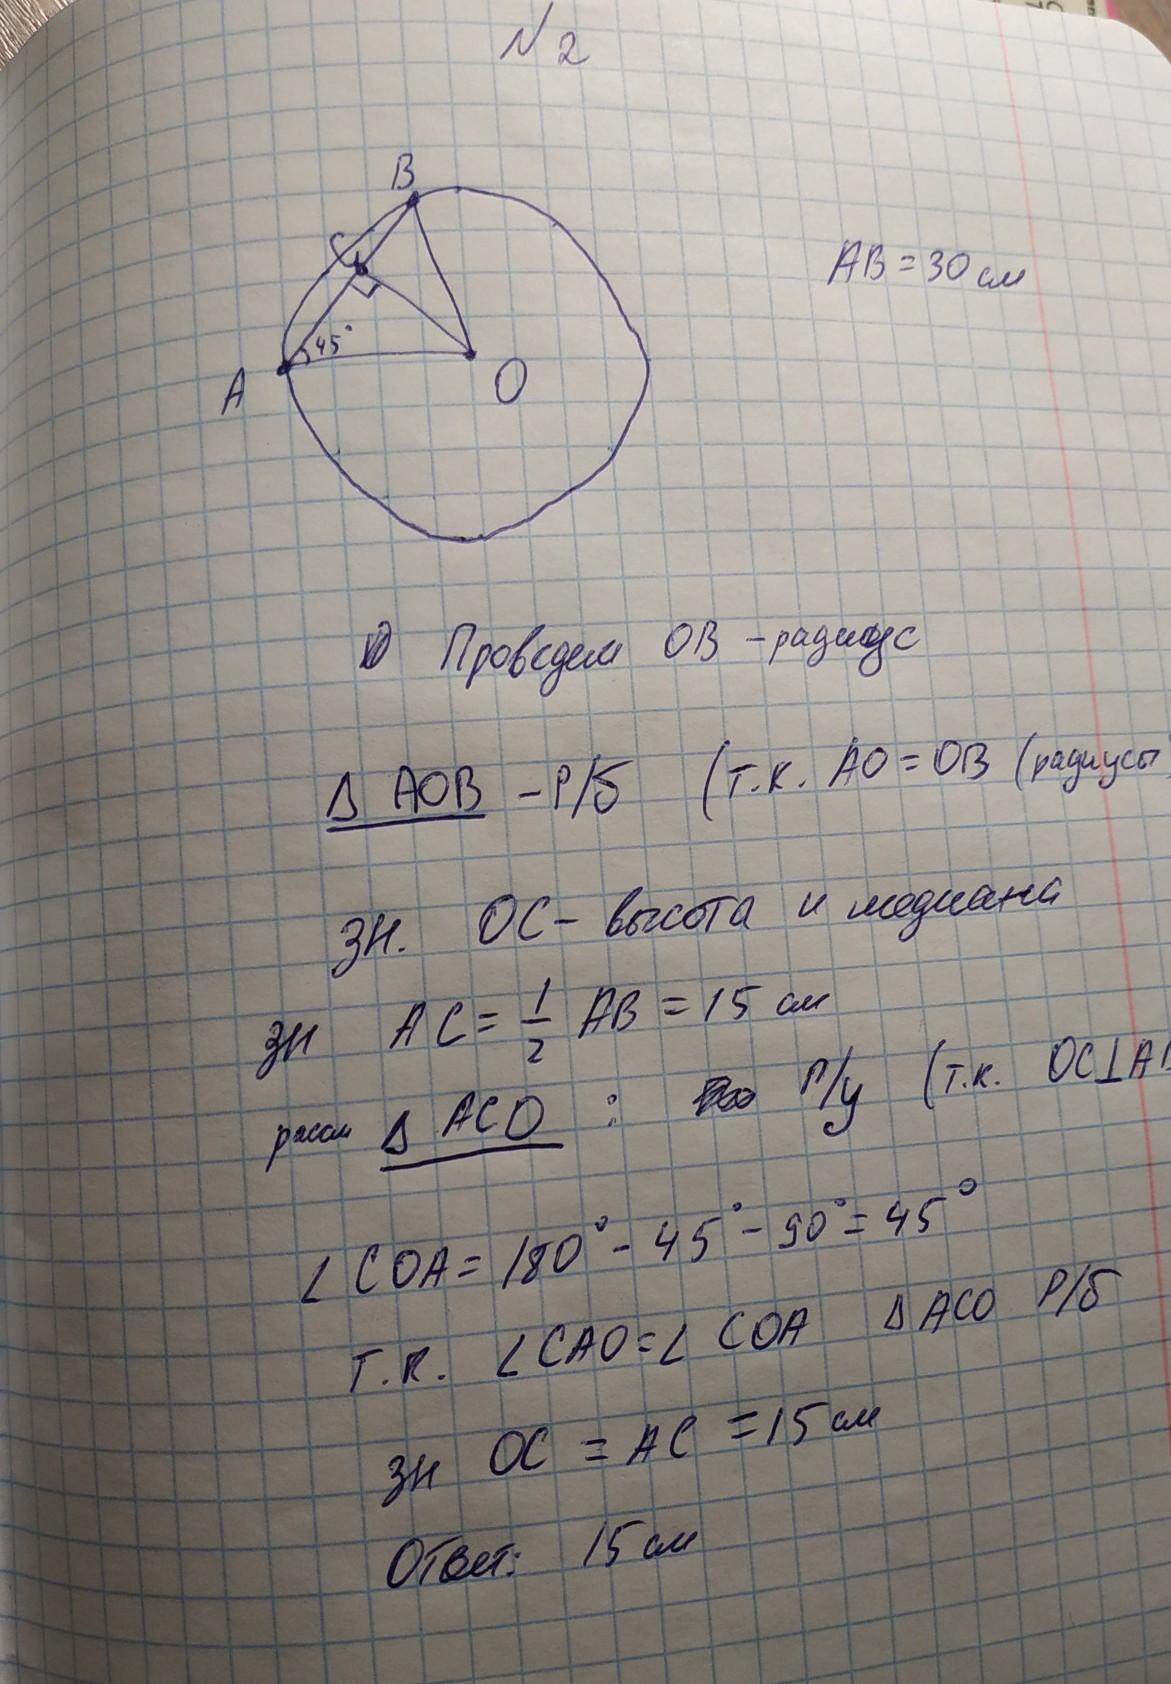 N 2
B
C
AB = 30 см
45°
A
O
Проведем OB - радиус
Δ AOB - Р/б (т.к. AO = OB (радиусы)
зн. OC - высота и медиана
зн AC = 1/2 AB = 15 см
рассм Δ ACO : П/у (т.к. OC⊥AB
∠ COA = 180° - 45° - 90° = 45°
Т.к. ∠ CAO = ∠ COA Δ ACO Р/б
зн OC = AC = 15 см
Ответ: 15 см